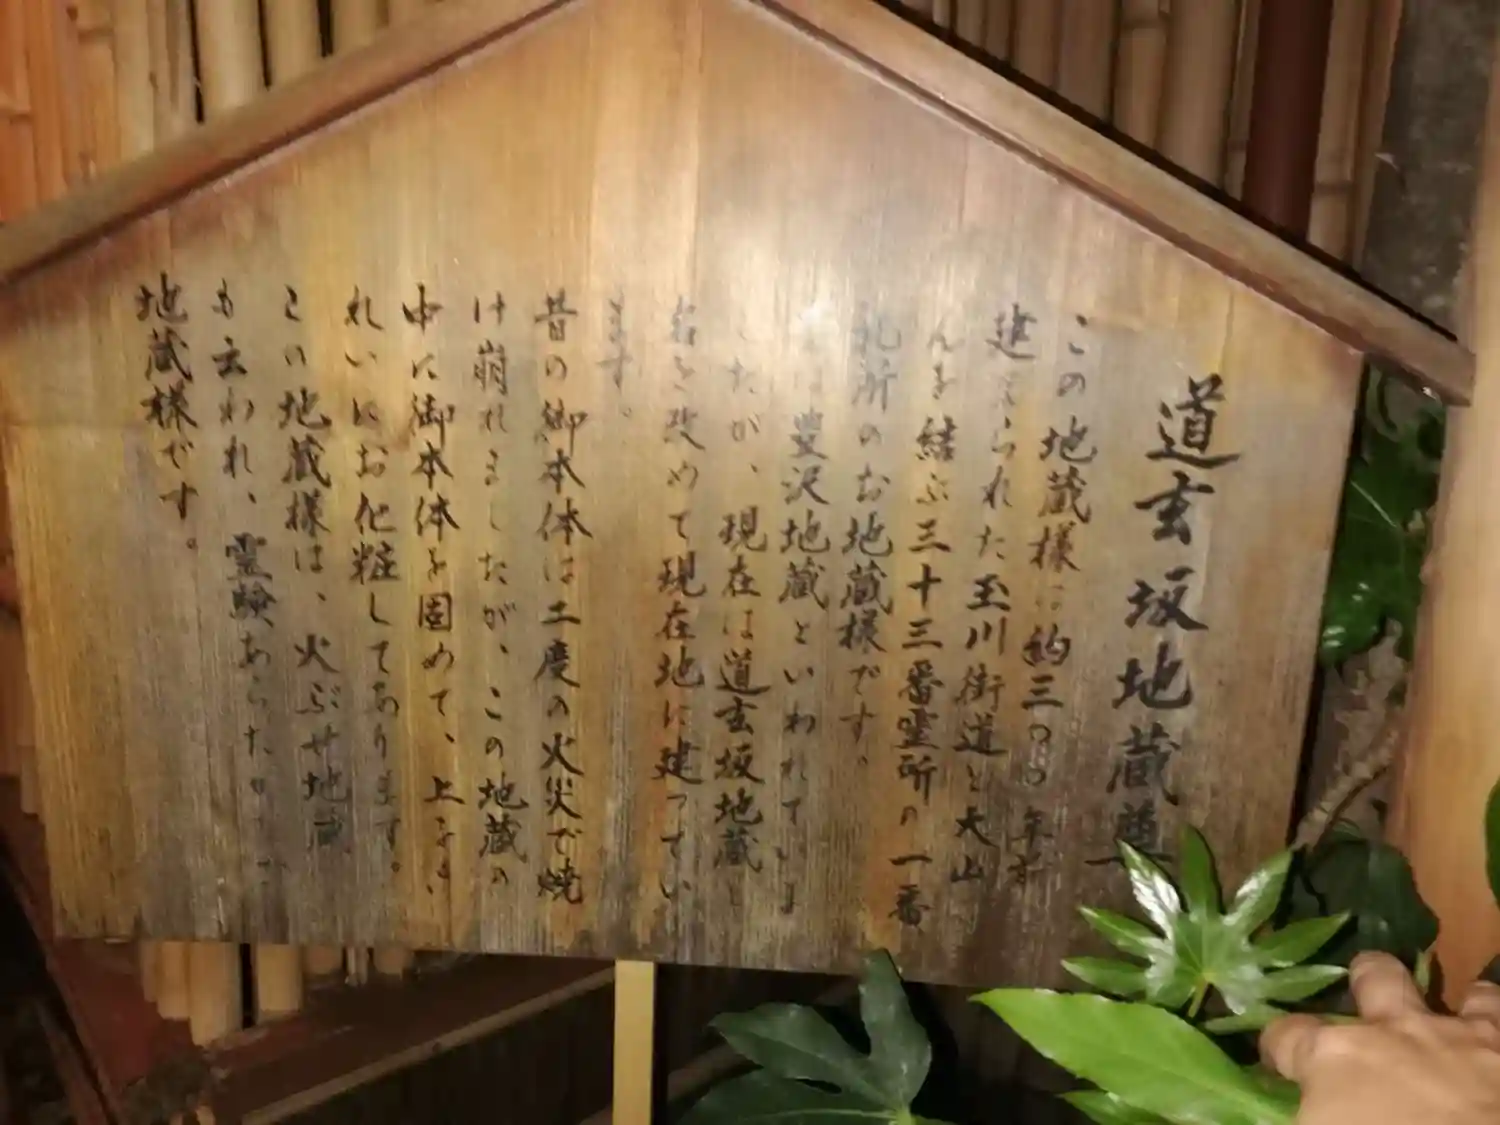 道玄坂地蔵尊
この地蔵様は約三〇〇年前
建てられた玉川街道と大山
を結ぶ三十三番霊所の一番
札所のお地蔵様です。
は豊沢地蔵といわれていま
したが、現在は道玄坂地蔵と
名を改めて現在地に建ってい
ます。
昔の御本体は二度の火災で焼
け崩れましたが、この地蔵の
中に御本体を固めて、上をき
れいにお化粧してあります。
この地蔵様は、火ぶせ地蔵
も云われ、霊験あらたか
地蔵様です。